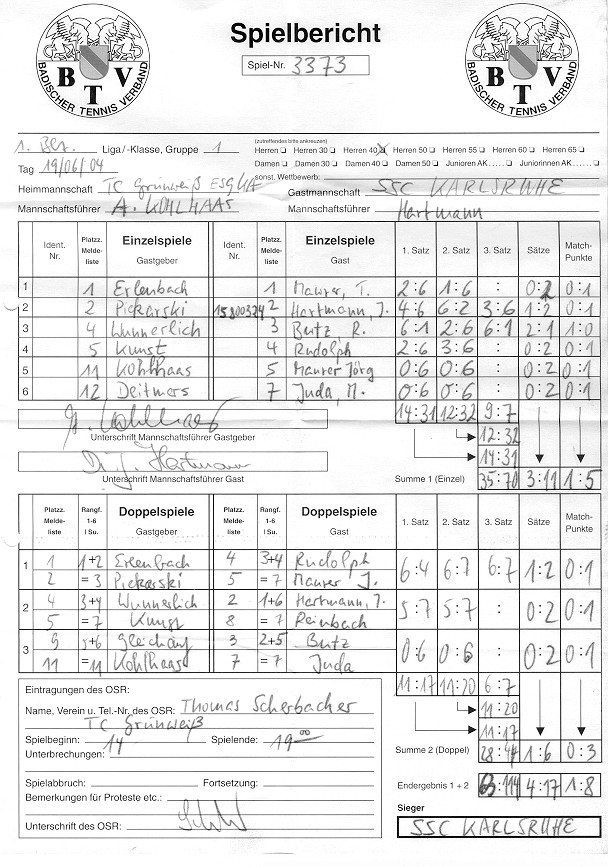 Spielbericht
BADISCHER TENNIS VERBAND
BTV
BADISCHER TENNIS VERBAND
BTV
Spiel-Nr. 3373
(zutreffendes bitte ankreuzen)
1. Bez. Liga/-Klasse, Gruppe 1 Herren Herren 30 Herren 40 Herren 50 Herren 55 Herren 60 Herren 65
Tag 19/06/04 Damen Damen 30 Damen 40 Damen 50 Junioren AK..... Juniorinnen AK......
sonst. Wettbewerb:
Heimmannschaft TC Grünweiß Gastmannschaft SSC KARLSRUHE
Mannschaftsführer A. KOHLHAAS Mannschaftsführer Hartmann
Ident. Nr. Platzz. Meldeliste Einzelspiele Gastgeber Ident. Nr. Platzz. Meldeliste Einzelspiele Gast 1. Satz 2. Satz 3. Satz Sätze Match-Punkte
1 1 Erlenbach 1 Maurer, T. 2:6 1:6 : 0:2 0:1
2 2 Piekarski 15800324 2 Hartmann, J. 4:6 6:2 3:6 1:2 0:1
3 4 Wunnerlich 3 Butz, R. 6:1 2:6 6:1 2:1 1:0
4 5 Kunst 4 Rudolph 2:6 3:6 : 0:2 0:1
5 11 Kohlhaas 5 Maurer Jörg 0:6 0:6 : 0:2 0:1
6 12 Deitmers 7 Juda, M. 0:6 0:6 : 0:2 0:1
14:31 12:32 9:7
12:32
Unterschrift Mannschaftsführer Gastgeber
14:31
Unterschrift Mannschaftsführer Gast Summe 1 (Einzel) 35:70 3:11 1:5
Platzz. Meldeliste Rangf. 1-6 I Su. Doppelspiele Gastgeber Platzz. Meldeliste Rangf. 1-6 I Su. Doppelspiele Gast 1. Satz 2. Satz 3. Satz Sätze Match-Punkte
1 1 1+2 Erlenbach 4 3+4 Rudolph 6:4 6:7 6:7 1:2 0:1
2 =3 Piekarski 5 =7 Maurer J.
2 4 3+4 Wunnerlich 2 1+6 Hartmann, J. 5:7 5:7 : 0:2 0:1
5 =7 Kunst 8 =7 Reinbach
3 9 5+6 Gleichauf 3 2+5 Butz 0:6 0:6 : 0:2 0:1
11 =11 Kohlhaas 7 =7 Juda
11:17 11:20 6:7
Eintragungen des OSR:
Name, Verein u. Tel.-Nr. des OSR: Thomas Scherbacher 11:20
TC Grünweiß 11:17
Spielbeginn: 14 Spielende: 19 00
Unterbrechungen: Summe 2 (Doppel) 28:44 1:6 0:3
Spielabbruch: Fortsetzung: Endergebnis 1 + 2 63:114 4:17 1:8
Bemerkungen für Proteste etc.: Sieger
Unterschrift des OSR: SSC KARLSRUHE